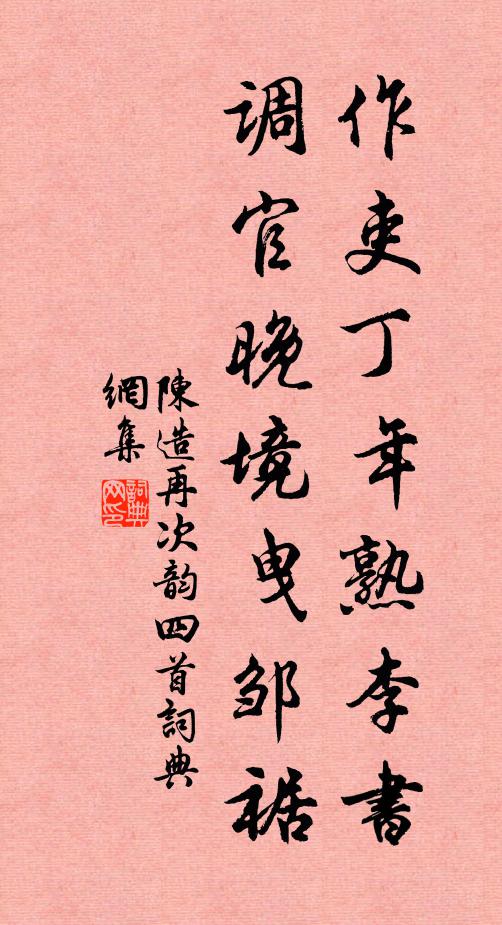 作吏丁年熟李書
调官晚境曳邹裾
陳造再次韵四首詞典
網集
詞典网印